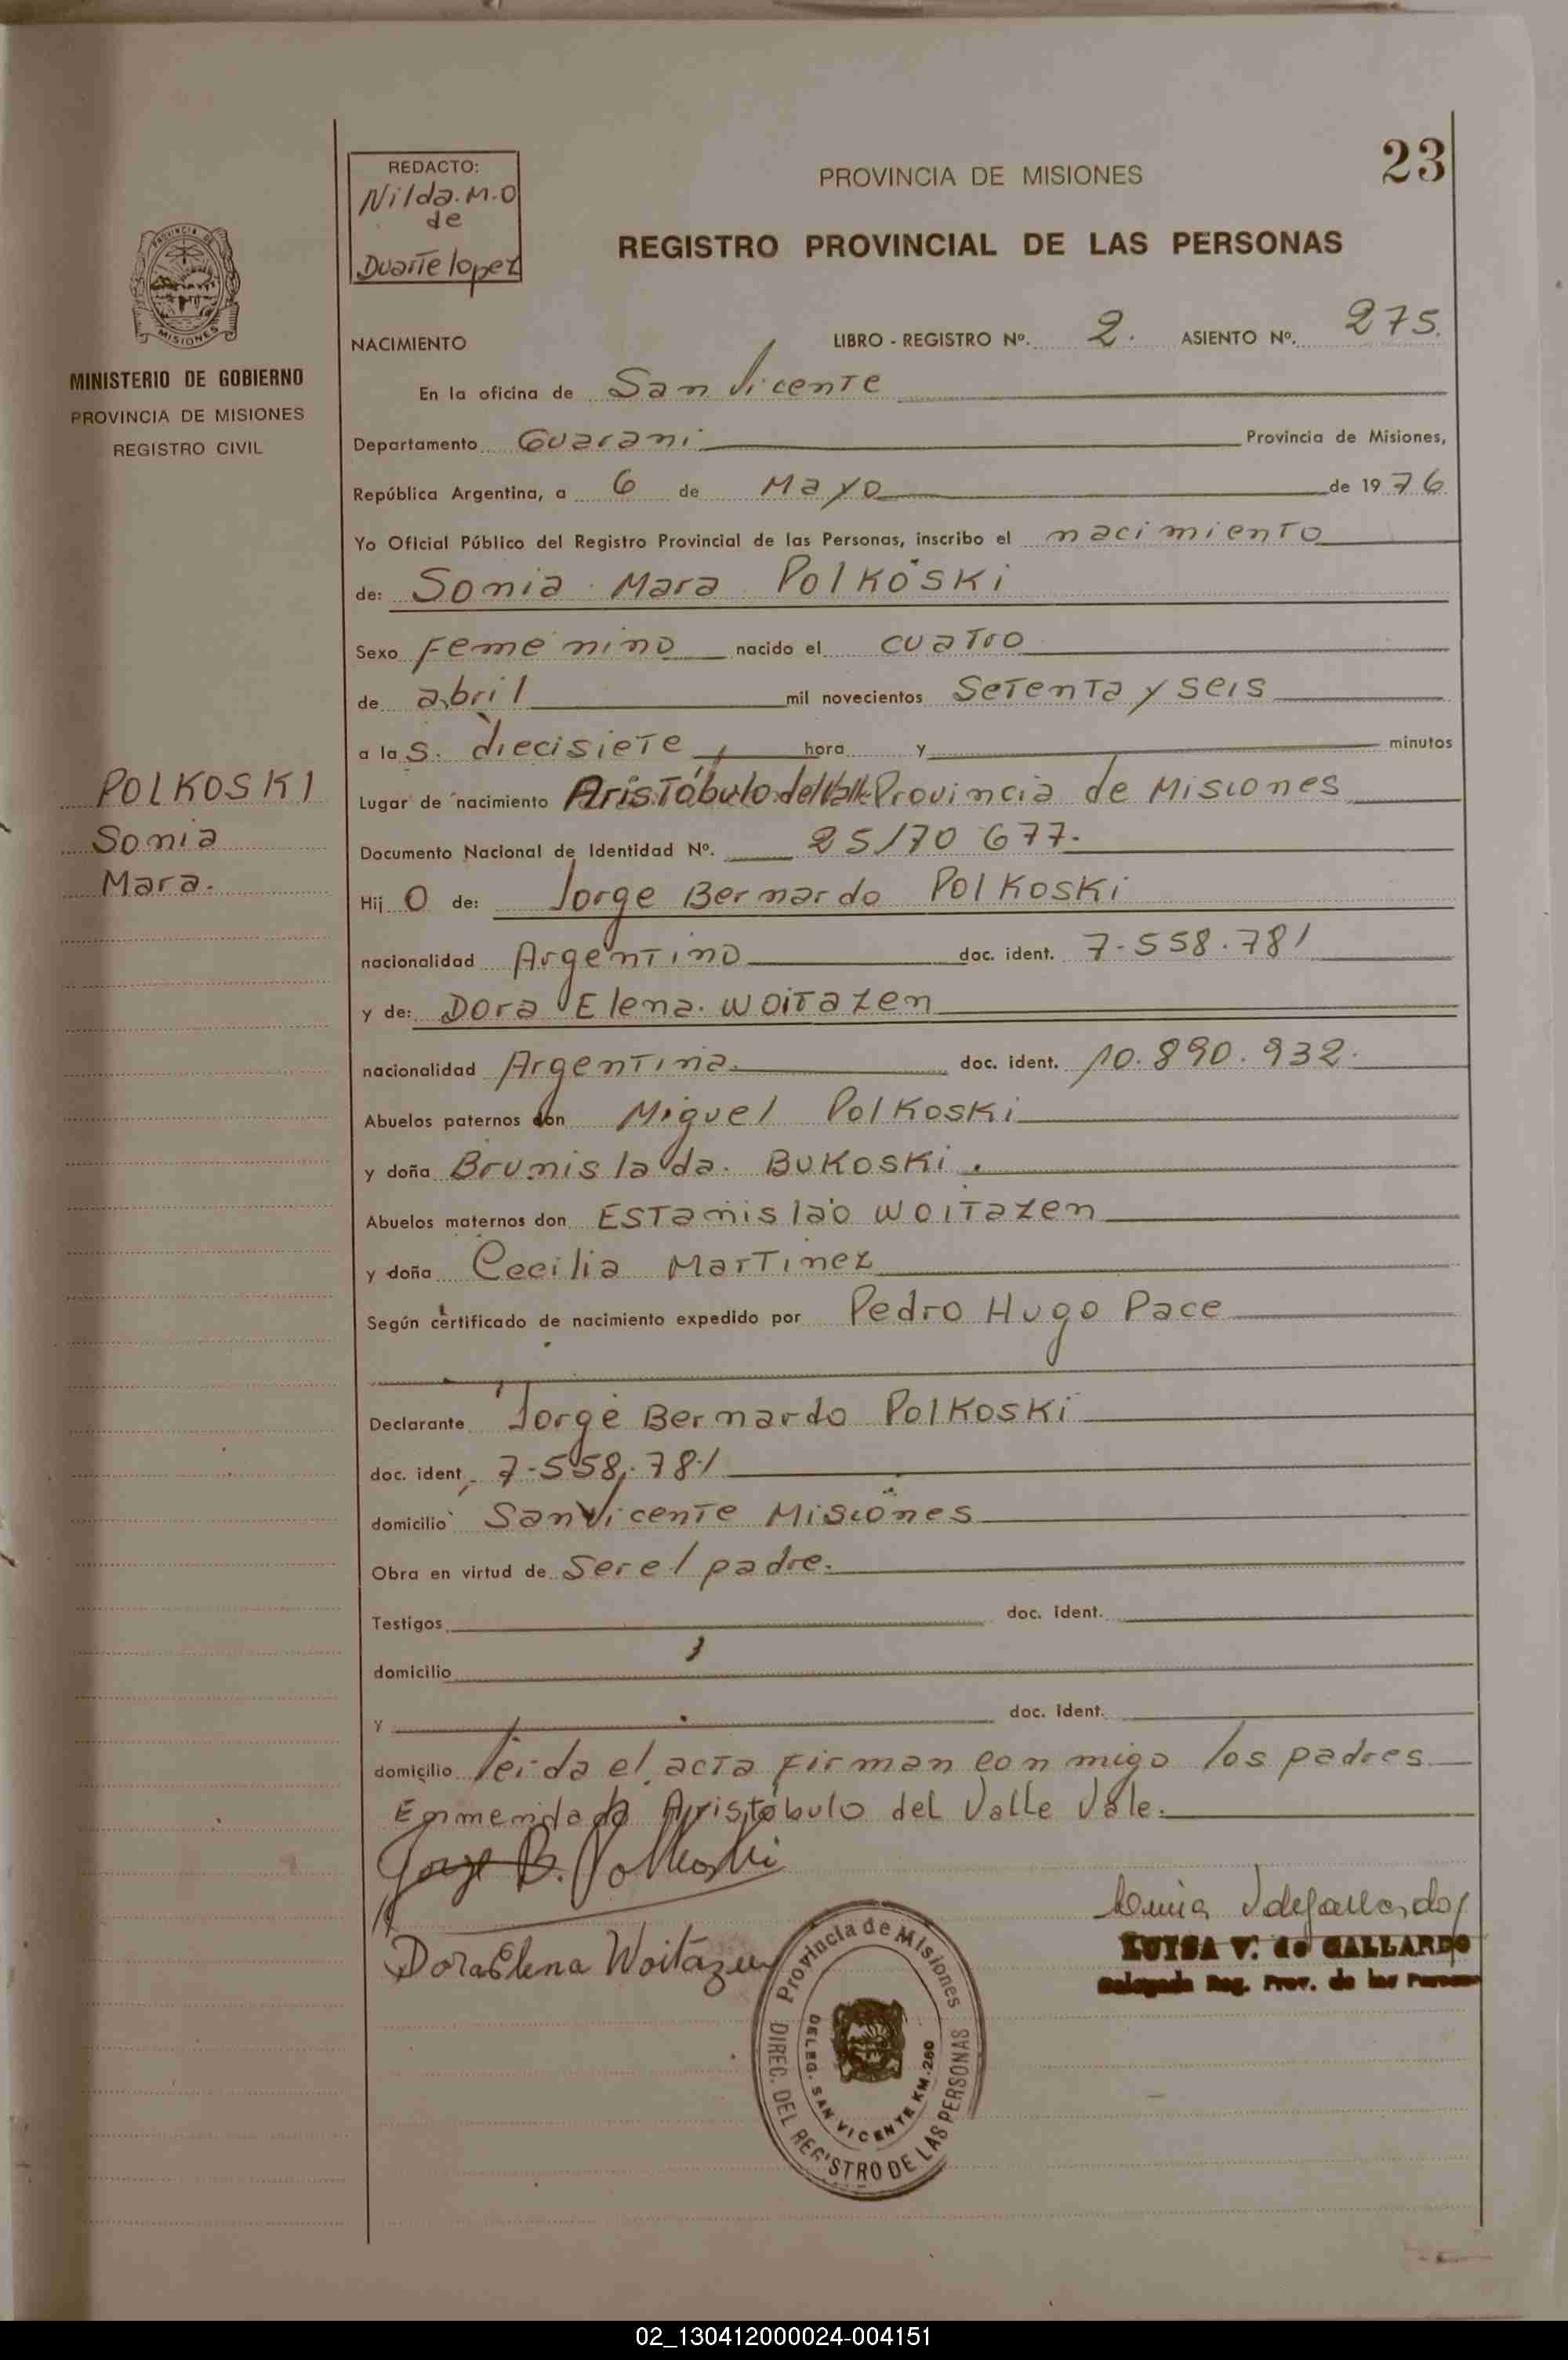 23
REDACTO:
Nilda.M.O
de
Duarte lopez
PROVINCIA DE MISIONES
REGISTRO PROVINCIAL DE LAS PERSONAS
PROVINCIA DE
MISIONES
MINISTERIO DE GOBIERNO
PROVINCIA DE MISIONES
REGISTRO CIVIL
NACIMIENTO LIBRO - REGISTRO Nº. 2. ASIENTO Nº. 275.
En la oficina de San Vicente
Departamento Guarani Provincia de Misiones,
República Argentina, a 6 de Mayo de 1976
Yo Oficial Público del Registro Provincial de las Personas, inscribo el nacimiento
de: Sonia Mara Polkoski
Sexo Femenino nacido el cuatro
de abril mil novecientos setenta y seis
a las. diecisiete hora y minutos
Lugar de nacimiento Aristóbulo del Valle Provincia de Misiones
Documento Nacional de Identidad Nº. 25/70 677.
Hijo de: Jorge Bernardo Polkoski
nacionalidad Argentino doc. ident. 7.558.781
y de: Dora Elena. Woitazen
nacionalidad Argentina. doc. ident. 10.890.932.
Abuelos paternos don Miguel Polkoski
y doña Brunislada. Bukoski.
Abuelos maternos don Estanislao Woitazen
y doña Cecilia Martinez
Según certificado de nacimiento expedido por Pedro Hugo Pace
Declarante Jorge Bernardo Polkoski
doc. ident. 7.558.781
domicilio San Vicente Misiones
Obra en virtud de ser el padre.
Testigos doc. ident.
domicilio
y doc. ident.
domicilio leida el acta firman conmigo los padres
Enmendado Aristóbulo del Valle Vale.
POLKOSKI
Sonia
Mara.
Jorge B. Polkoski
Dora Elena Woitazen
LUISA V. de GALLARDO
Delegada Reg. Prov. de las Personas
Provincia de Misiones
DIREC. DEL REGISTRO DE LAS PERSONAS
DELEG. SAN VICENTE KM.260
02_130412000024-004151